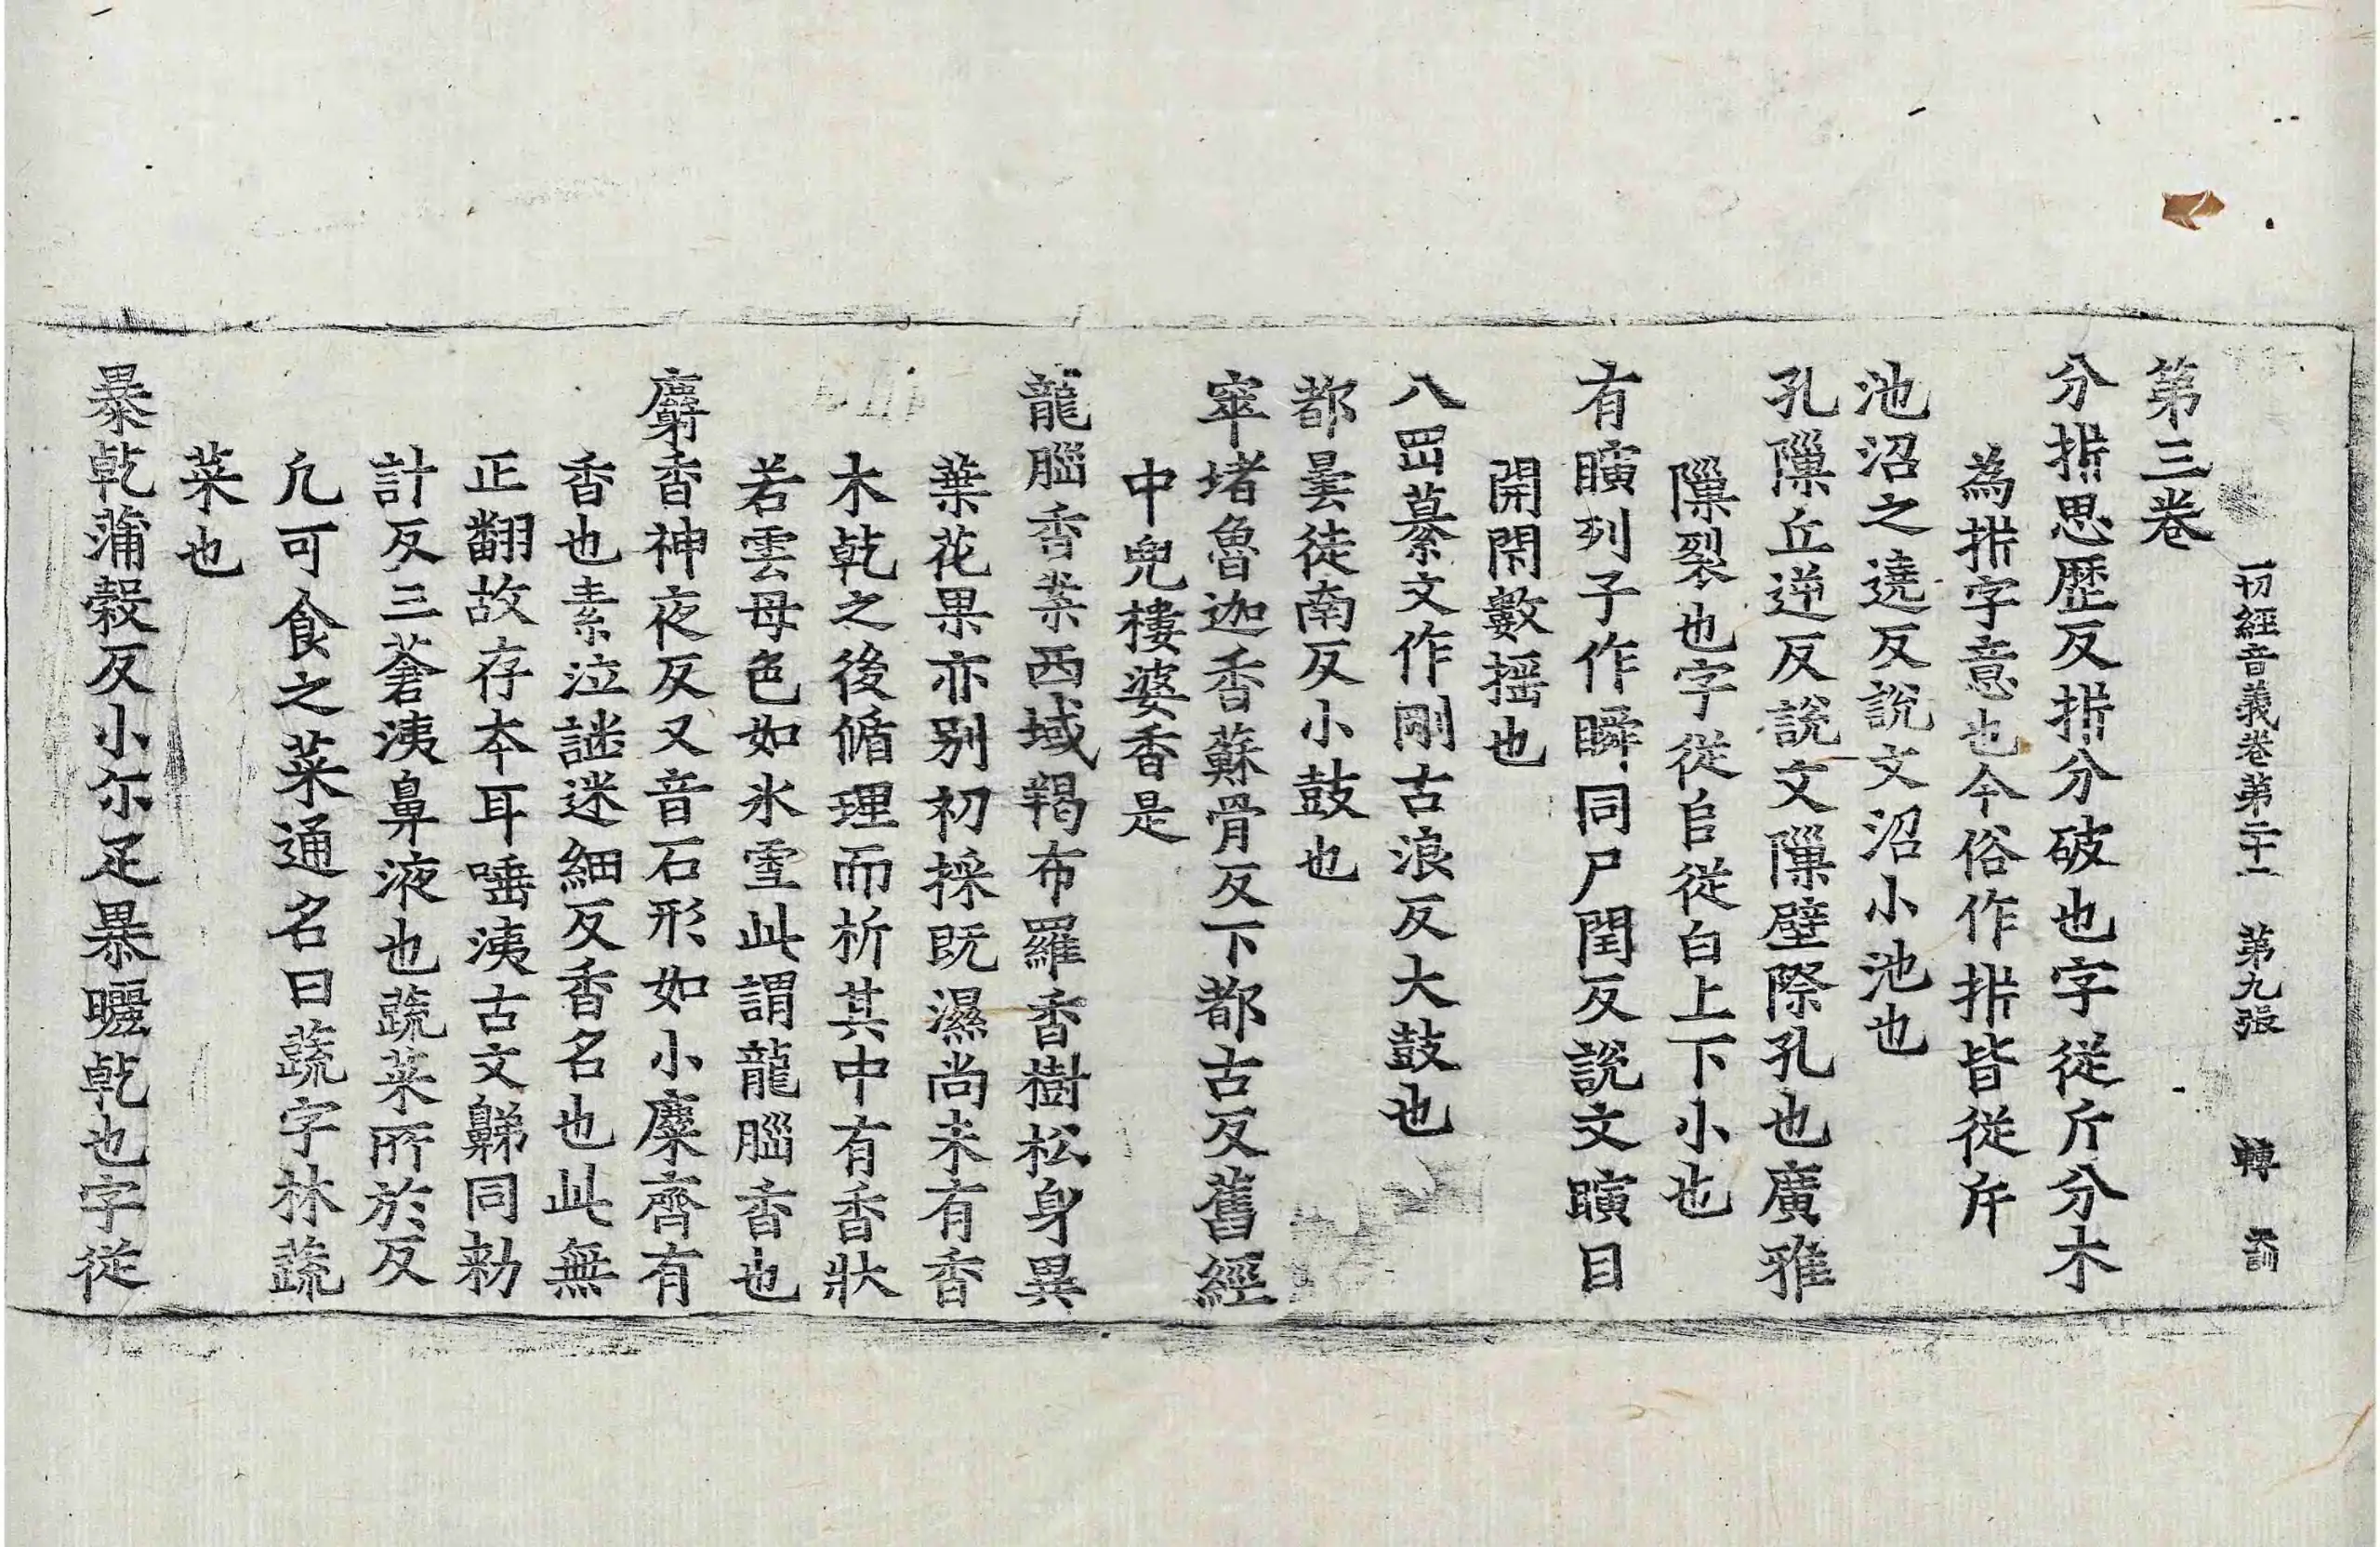 一切經音義卷第二十二　第九張　轉　天訓
第三卷
分㭊思歷反㭊分破也字從斤分木
為㭊字意也今俗作㭊皆從斤
池沼之遶反說文沼小池也
孔隟丘逆反說文隟壁際孔也廣雅
隟裂也字從𨸏從白上下小也
有瞚列子作瞬同尸閏反說文瞚目
開閇數搖也
八𦊆纂文作剛古浪反大鼓也
都曇徒南反小鼓也
窣堵魯迦香蘇骨反下都古反舊經
中兜樓婆香是
龍腦香葉西域羯布羅香樹松身異
葉花果亦別初採既濕尚未有香
木乾之後循理而析其中有香狀
若雲母色如氷雪此謂龍腦香也
麝香神夜反又音石形如小麋齊有
香也素泣謎迷細反香名也此無
正翻故存本耳唾洟古文鮷同勑
計反三蒼洟鼻液也蔬菜所於反
凢可食之菜通名曰蔬字林蔬
菜也
暴乾蒲縠反小尒疋暴曬乾也字從